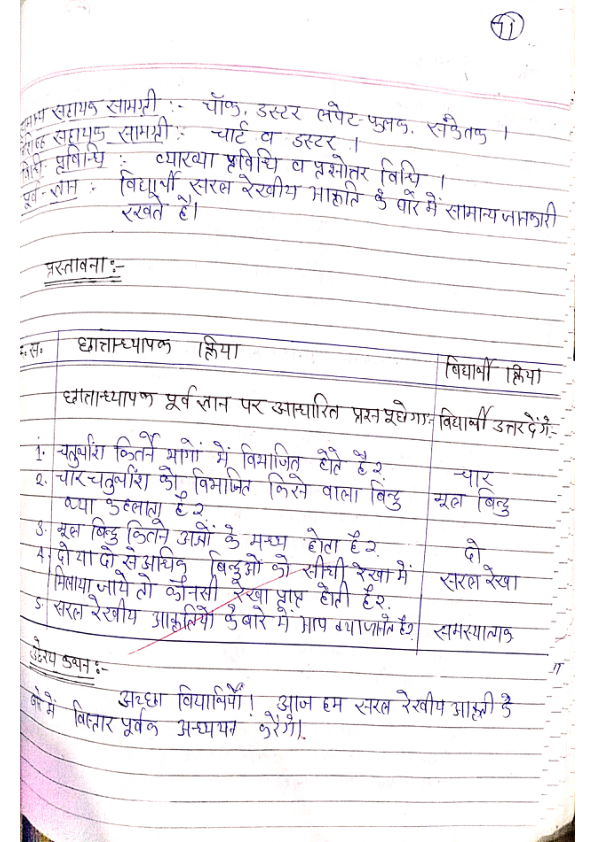 11
सहायक सामग्री :- चॉक, डस्टर लपेट-फलक, संकेतक ।
सहायक सामग्री :- चार्ट व डस्टर ।
प्रविधि : व्याख्या प्रविधि व प्रश्नोत्तर विधि ।
पूर्व-ज्ञान : विद्यार्थी सरल रेखीय आकृति के बारे में सामान्य जानकारी
रखते है।
प्रस्तावना :-
क्र.स. छात्राध्यापक क्रिया विद्यार्थी क्रिया
छात्राध्यापक पूर्व ज्ञान पर आधारित प्रश्न पूछेगा:- विद्यार्थी उत्तर देंगे:-
1. चतुर्थांश कितने भागों में विभाजित होते है?
चार
2. चार चतुर्थांश को विभाजित करने वाला बिन्दु मूल बिन्दु
क्या कहलाता है?
3. मूल बिन्दु कितने अक्षों के मध्य होता है? दो
4. दो या दो से अधिक बिन्दुओं को सीधी रेखा में सरल रेखा
मिलाया जाये तो कौनसी रेखा प्राप्त होती है?
5. सरल रेखीय आकृतियों के बारे में आप क्या जानते है? समस्यात्मक
उद्देश्य कथन :-
अच्छा विद्यार्थियों! आज हम सरल रेखीय आकृती के
बारे में विस्तार पूर्वक अध्ययन करेंगे।